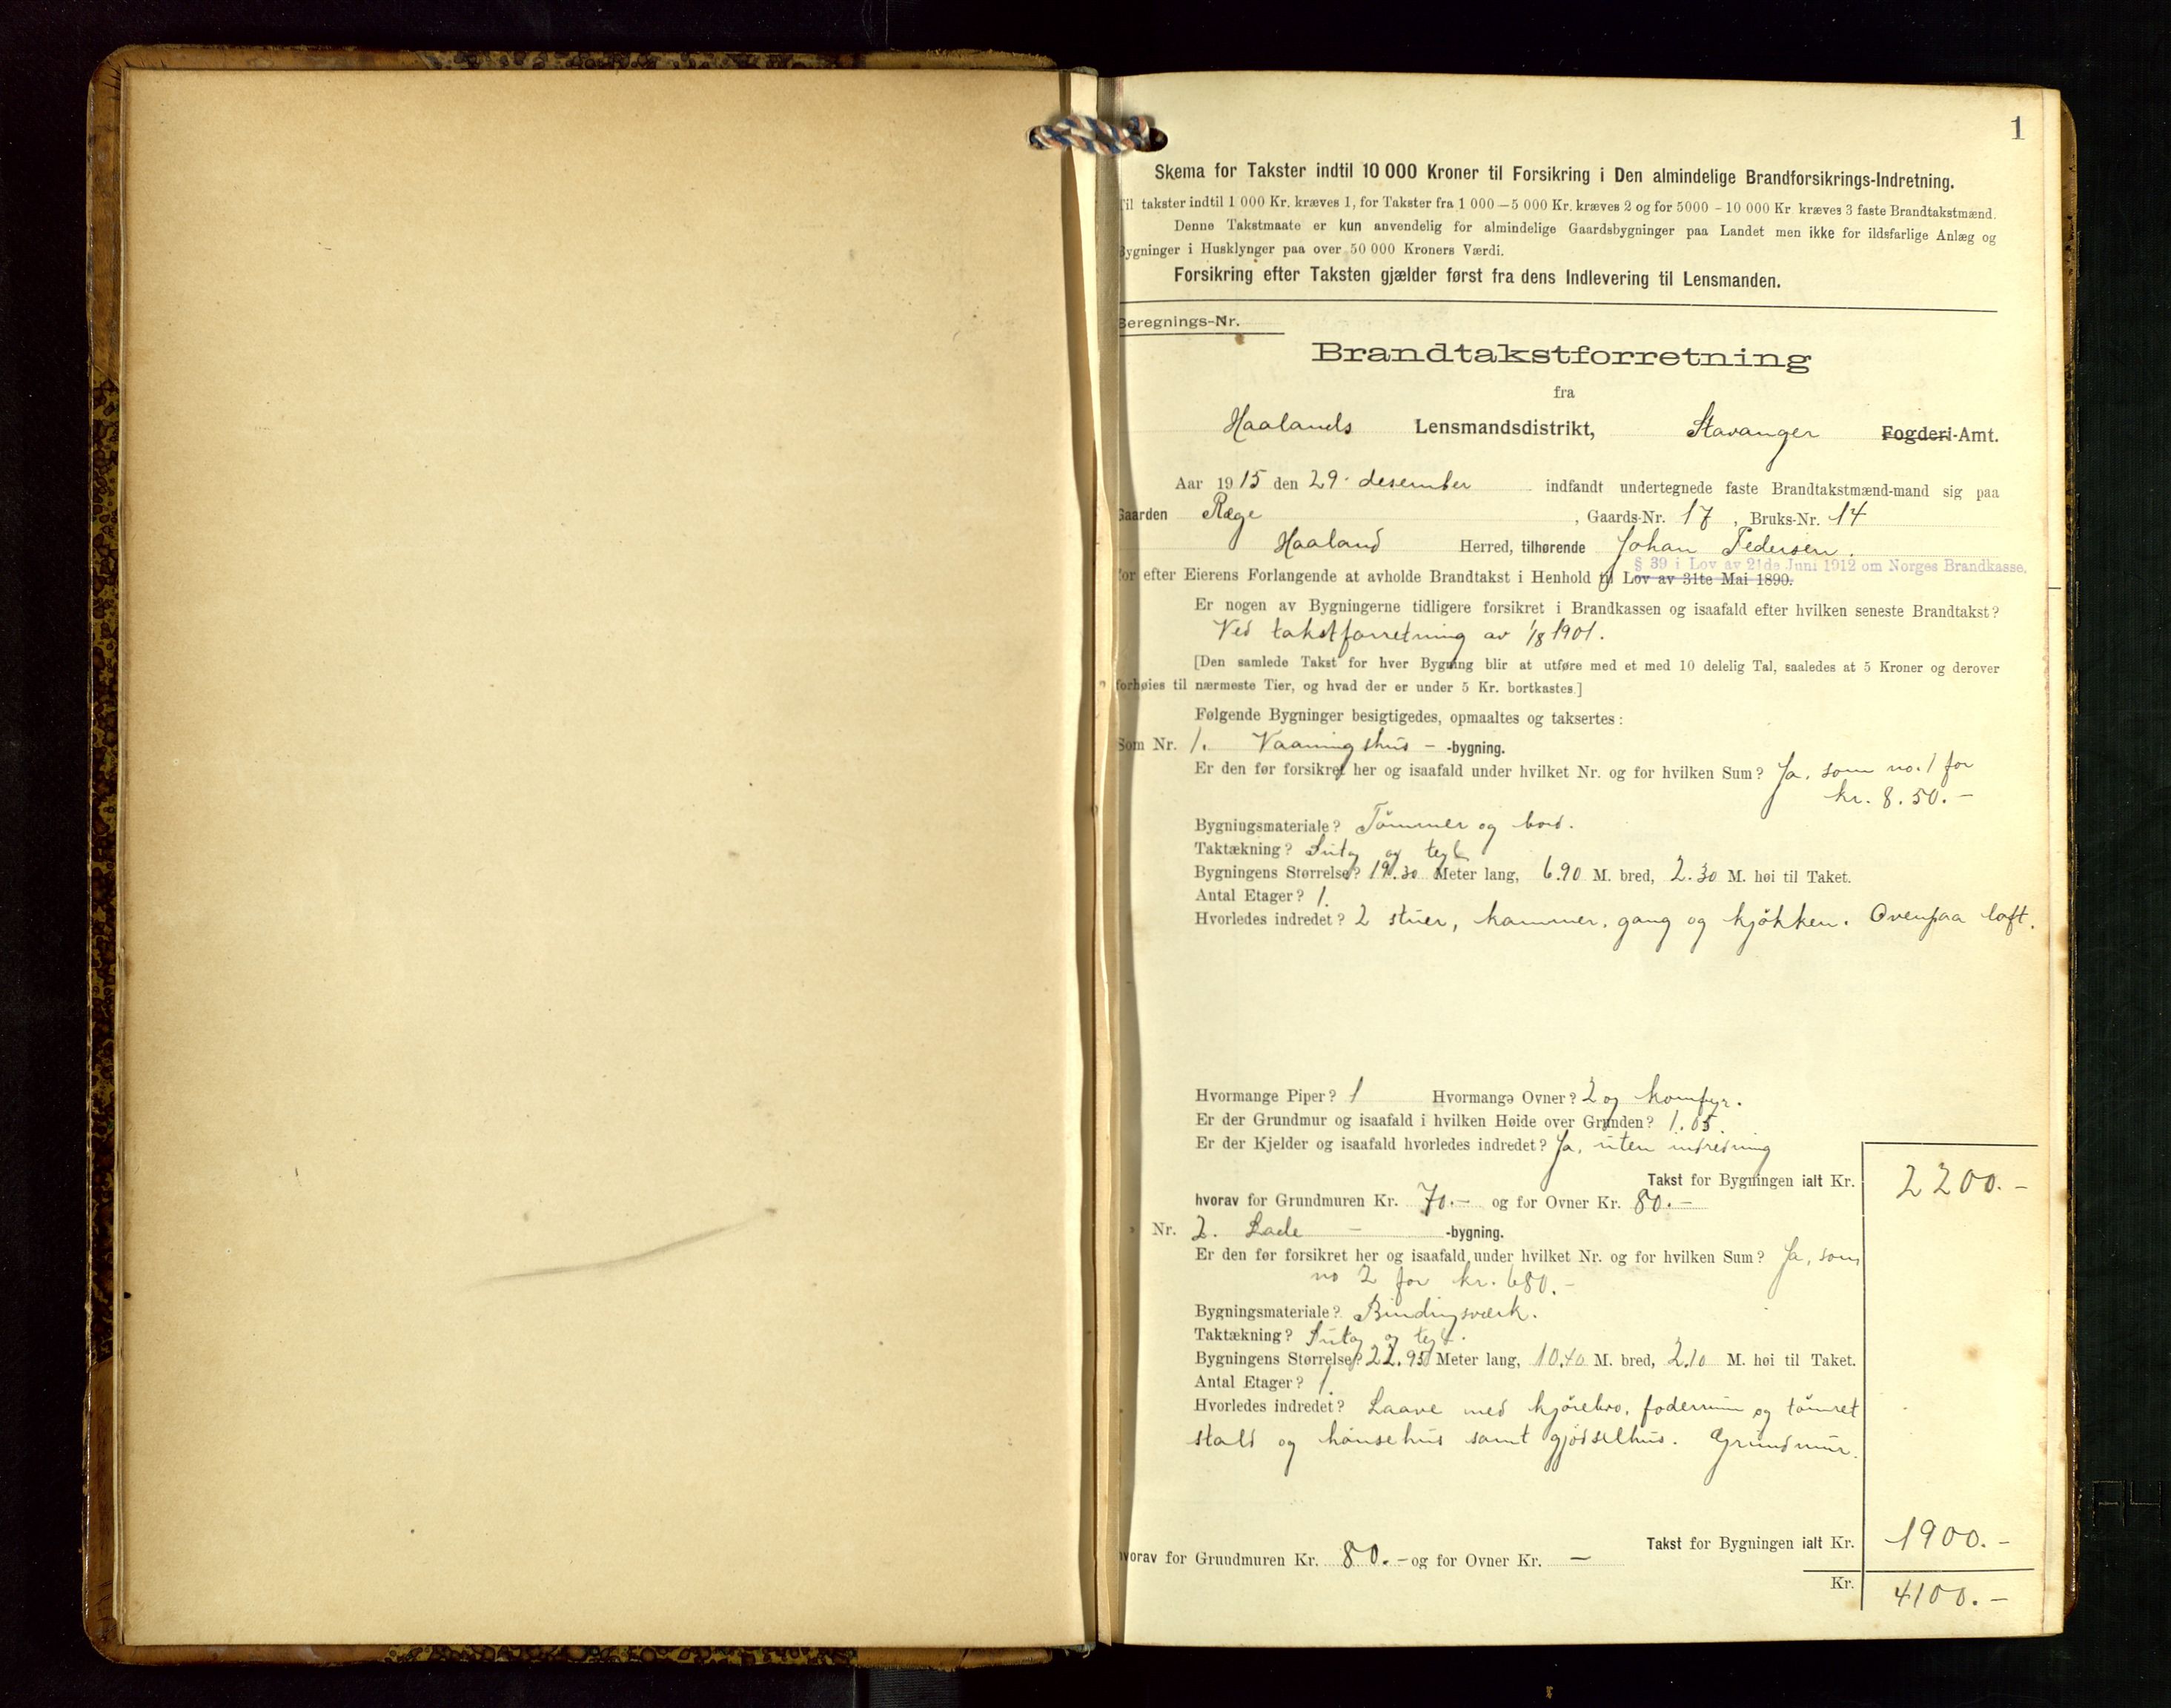 1
Skema for Takster indtil 10 000 Kroner til Forsikring i Den almindelige Brandforsikrings-Indretning.
Til takster indtil 1 000 Kr. kræves 1, for Takster fra 1 000—5 000 Kr. kræves 2 og for 5000 - 10 000 Kr. kræves 3 faste Brandtakstmænd.
Denne Takstmaate er kun anvendelig for almindelige Gaardsbygninger paa Landet men ikke for ildsfarlige Anlæg og
Bygninger i Husklynger paa over 50 000 Kroners Værdi.
Forsikring efter Taksten gjælder først fra dens Indlevering til Lensmanden.
Beregnings-Nr.
Brandtakstforretning
fra
Haalands Lensmandsdistrikt, Stavanger Fogderi-Amt.
Aar 1915 den 29. desember indfandt undertegnede faste Brandtakstmænd-mand sig paa
Gaarden Ræge , Gaards-Nr. 17 , Bruks-Nr. 14
Haaland Herred, tilhørende Johan Pedersen.
§ 39 i Lov av 21de Juni 1912 om Norges Brandkasse.
for efter Eierens Forlangende at avholde Brandtakst i Henhold til Lov av 31te Mai 1890.
Er nogen av Bygningerne tidligere forsikret i Brandkassen og isaafald efter hvilken seneste Brandtakst?
Ved takstforretning av 1/8 1901.
[Den samlede Takst for hver Bygning blir at utføre med et med 10 delelig Tal, saaledes at 5 Kroner og derover
forhøies til nærmeste Tier, og hvad der er under 5 Kr. bortkastes.]
Følgende Bygninger besigtigedes, opmaaltes og taksertes:
Som Nr. 1. Vaaningshus - -bygning.
Er den før forsikret her og isaafald under hvilket Nr. og for hvilken Sum? Ja, som no. 1 for
kr. 8.50.-
Bygningsmateriale? Tömmer og bord.
Taktækning? Sutag og tegl
Bygningens Størrelse? 19.30 Meter lang, 6.90 M. bred, 2.30 M. høi til Taket.
Antal Etager? 1.
Hvorledes indredet? 2 stuer, kammer, gang og kjökken. Ovenpaa loft.
Hvormange Piper? 1 Hvormange Ovner? 2 og komfyr.
Er der Grundmur og isaafald i hvilken Høide over Grunden? 1.05.
Er der Kjelder og isaafald hvorledes indredet? Ja, uten indredning
Takst for Bygningen ialt Kr. 2200.-
hvorav for Grundmuren Kr. 70.- og for Ovner Kr. 80.-
Nr. 2. Lade - -bygning.
Er den før forsikret her og isaafald under hvilket Nr. og for hvilken Sum? Ja, som
no 2 for kr. 680.-
Bygningsmateriale? Bindingsværk.
Taktækning? Sutag og tegl.
Bygningens Størrelse? 22.95 Meter lang, 10.40 M. bred, 2.10 M. høi til Taket.
Antal Etager? 1.
Hvorledes indredet? Laave med kjörebro, foderrum og tömret
stald og hönsehus samt gjödselhus. Grundmur.
Takst for Bygningen ialt Kr. 1900.-
hvorav for Grundmuren Kr. 80.- og for Ovner Kr. —
Kr. 4100.-